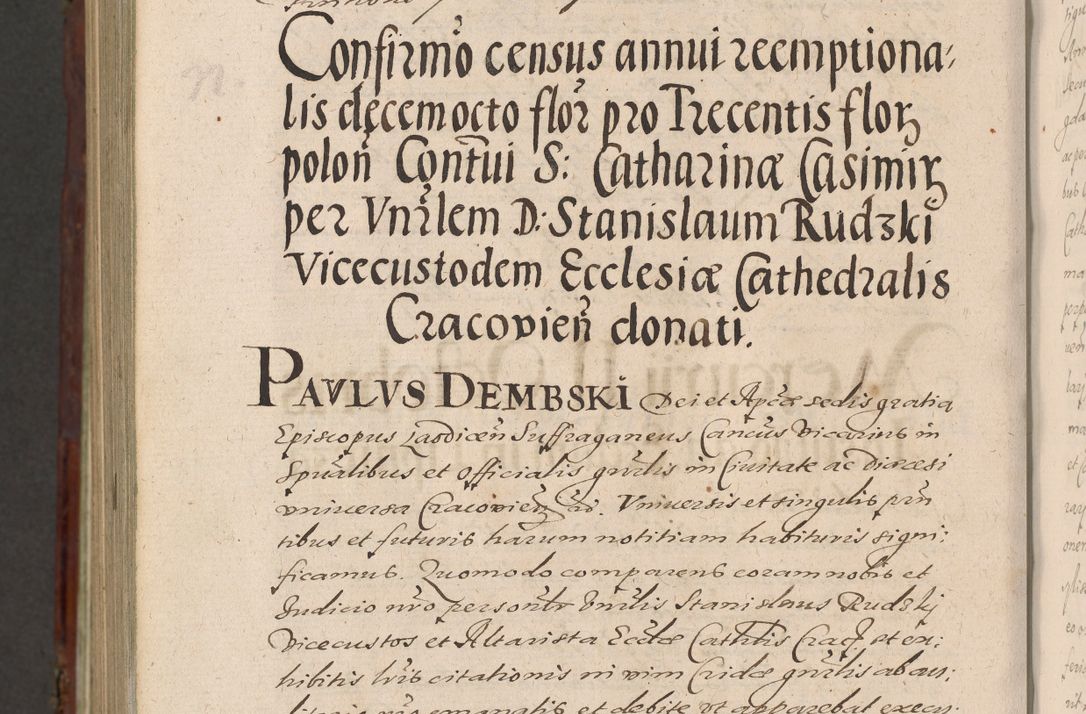 Confirmo census annui reemptiona-
lis decem octo flor pro Trecentis flor
polon Contui S: Catharinæ Casimir
per Vnrlem D: Stanislaum Rudzki
Vicecustodem Ecclesiæ Cathedralis
Cracovien donati.
PAVLVS DEMBSKI Dei et Aplcæ sedis gratia
Episcopus Laodicen Suffraganeus Cancus Vicarius in
Spualibus et Officialis gnrlis in Ciuitate ac Diœcesi
vniuersa Cracovien Vniuersis et singulis prn
tibus et futuris harum notitiam habituris signi:
ficamus. Quomodo comparens coram nobis et
Iudicio nro personlr Vnrlis Stanislaus Rudzkij
Vicecustos et Altarista Eccliæ Cathlis Crac et ex:
hibitis lris citationis in vim Cridæ gnrlis ab an:
et debite vt apparebat execu: